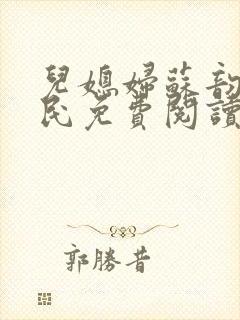 兒媳婦蘇韵
民免費閱讀
郭勝昔